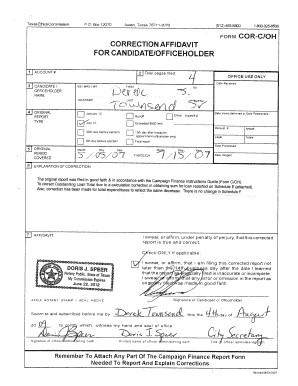 Texas Ethics Commission P.O. Box 12070 Austin, Texas 78711-2070 (512) 463-5800 1-800-325-8506
FORM COR-C/OH
CORRECTION AFFIDAVIT
FOR CANDIDATE/OFFICEHOLDER
1 ACCOUNT #
2 Total pages filed: 4
OFFICE USE ONLY
3 CANDIDATE / OFFICEHOLDER NAME
Derek S.
Townsend Sr
Date Received
4 ORIGINAL REPORT TYPE
January 15
July 15
Runoff
Other
Exceeded $500 limit
Final report
Receipt #
Amount
Date Processed
5 ORIGINAL PERIOD COVERED
THROUGH
Date Imaged
6 EXPLANATION OF CORRECTION
The original report was filed in good faith & in accordance with the Campaign Finance Instructions Guide (Form C/OH).
To correct Outstanding Loan Total due to a calculation correction of obtaining sum for loan reported on Schedule E (attached).
Also, correction has been made for total expenditures to reflect the same decrease. There is no change in Schedule F
7 AFFIDAVIT
I swear, or affirm, under penalty of perjury, that this corrected
report is true and correct.
Check ONLY if applicable:
I swear, or affirm, that I am filing this corrected report not
later than the 14th business day after the date I learned
that the report as originally filed is inaccurate or incomplete.
I swear, or affirm, that any error or omission in the report as
originally filed was made in good faith.
DORIS J. SPEER
Notary Public, State of Texas
My Commission Expires
June 22, 2012
AFFIX NOTARY STAMP / SEAL ABOVE
Signature of Candidate or Officeholder
Sworn to and subscribed before me by Derek Townsend this the 4th day of August
20 09 to certify which, witness my hand and seal of office.
Doris J. Speer City Secretary
Signature of officer administering oath Printed name of officer administering oath Title of officer administering oath
Remember To Attach Any Part Of The Campaign Finance Report Form
Needed To Report And Explain Corrections